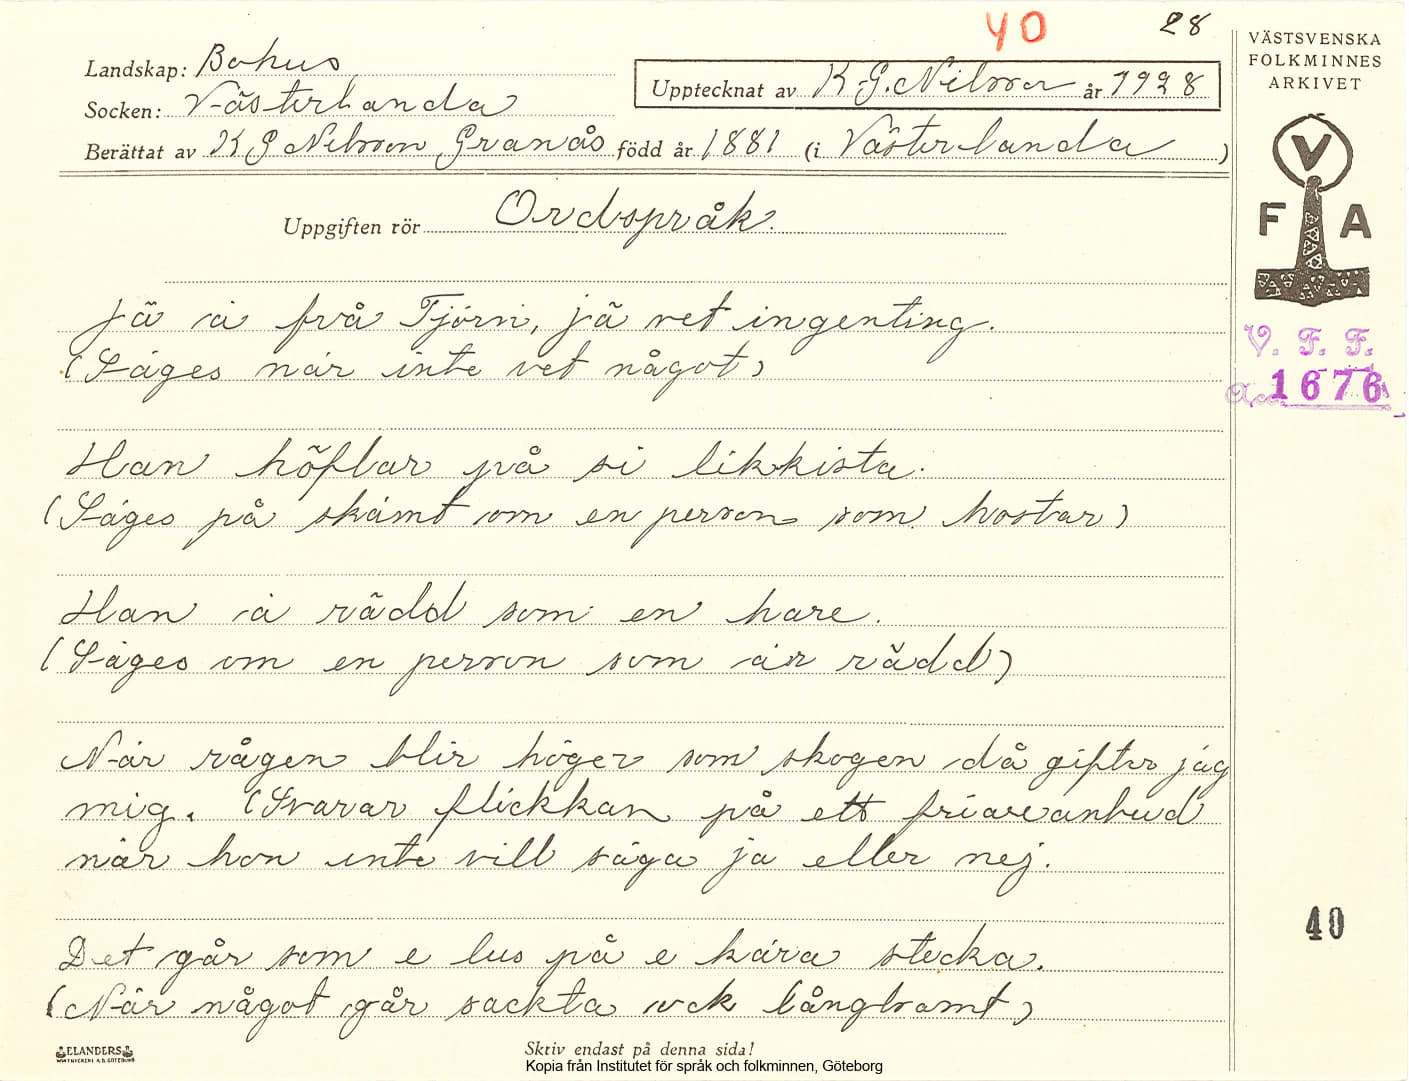 40
28
Landskap: Bohus
Socken: Västerlanda
Upptecknat av K.G. Nilsson år 1928
Berättat av K G Nilsson Granås född år 1881 (i Västerlanda)
VÄSTSVENSKA
FOLKMINNES
ARKIVET
V
F A
V. F. F.
Acc. 1676
Uppgiften rör Ordspråk.
Jä ä frå Tjörn, jä vet ingenting.
(Säges när inte vet något)
Han höflar på si likkista.
(Säges på skämt om en person som hostar)
Han ä rädd som en hare.
(Säges om en person som är rädd)
När rågen blir höger som skogen då gifter jag
mig. (Svarar flickkan på ett friareanbud
när hon inte vill säga ja eller nej.
40
Det går som e lus på e kära stecka.
(När något går sackta ock långtsamt)
ELANDERS
Skriv endast på denna sida!
Kopia från Institutet för språk och folkminnen, Göteborg